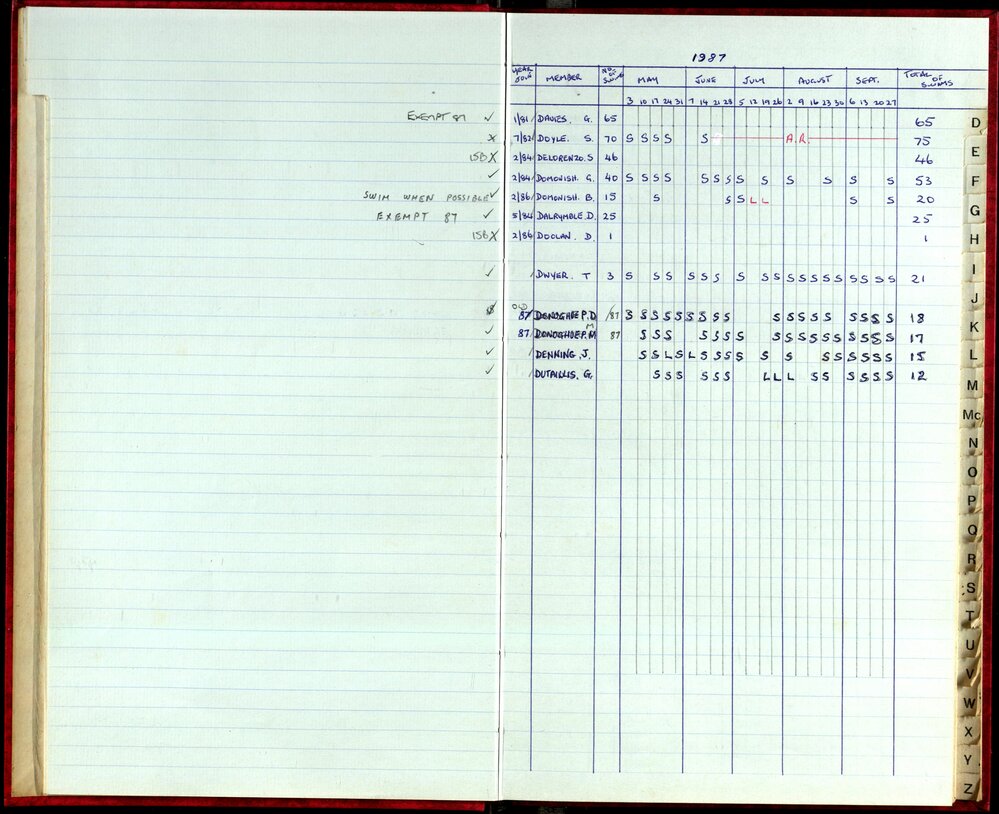 1987
YEAR JOIN MEMBER NO. OF SWIMS MAY JUNE JULY AUGUST SEPT. TOTAL OF SWIMS
3 10 17 24 31 7 14 21 28 5 12 19 26 2 9 16 23 30 6 13 20 27
EXEMPT 87 ✓ 1/81 DAVIES. G. 65 65
x 7/82 DOYLE. S. 70 S S S S S A.R. 75
15B X 2/84 DELORENZO. S 46 46
✓ 2/84 DOMONISH. G. 40 S S S S S S S S S S S S S 53
SWIM WHEN POSSIBLE ✓ 2/86 DOMONISH. B. 15 S S S L L S S 20
EXEMPT 87 ✓ 5/84 DALRYMBLE. D. 25 25
15B X 2/86 DOOLAN. D. 1 1
✓ / DWYER. T 3 S S S S S S S S S S S S S S S S S S 21
OLD 87 DONOGHOE P. D /87 S S S S S S S S S S S S S S S S S S 18
✓ 87 DONOGHOE P. M 87 S S S S S S S S S S S S S S S S S 17
✓ / DENNING. J. S S L S L S S S S S S S S S S S S 15
✓ DUTAILLIS. G. S S S S S S L L L S S S S S S 12
D
E
F
G
H
I
J
K
L
M
Mc
N
O
P
Q
R
S
T
U
V
W
X
Y
Z